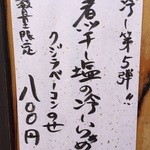 冷〜第5弾!!
煮干し塩の冷しらーめん
クジラベーコンのせ
数量限定
八〇〇円